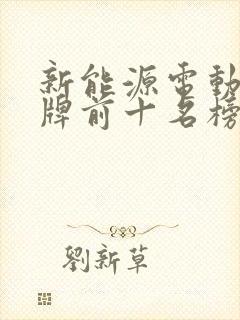 新能源電動
牌前十名榜
劉新草